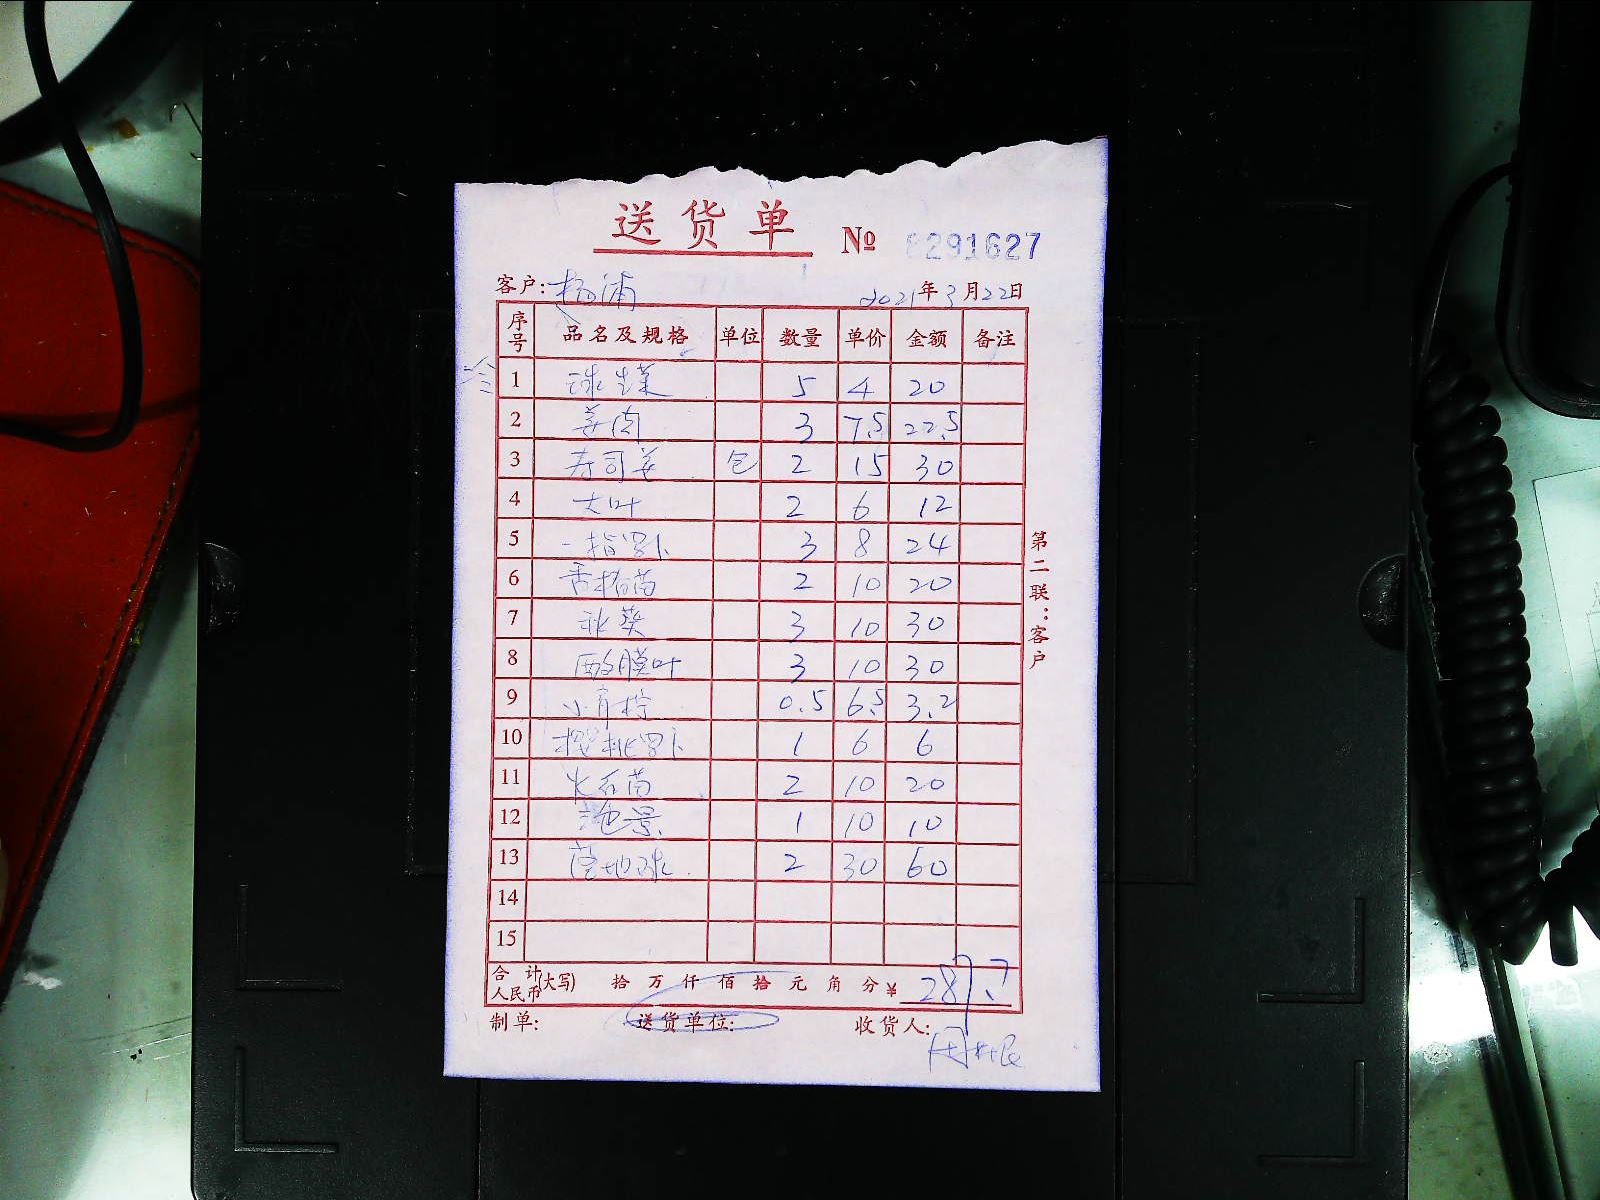 送货单 № 0291627
客户:杨浦 2021年3月22日
序号 品名及规格 单位 数量 单价 金额 备注
冷 1 球生菜 5 4 20
2 姜肉 3 7.5 22.5
3 寿司姜 包 2 15 30
4 大叶 2 6 12
5 一指罗卜 3 8 24
6 2 10 20
7 秋葵 3 10 30
8 酸膜叶 3 10 30
9 小青柠 0.5 6.5 3.2
10 樱桃罗卜 1 6 6
11 火石苗 2 10 20
12 1 10 10
13 2 30 60
14
15
合计人民币(大写) 拾 万 仟 佰 拾 元 角 分 ¥ 287.7
制单: 送货单位: 收货人:
第二联:客户